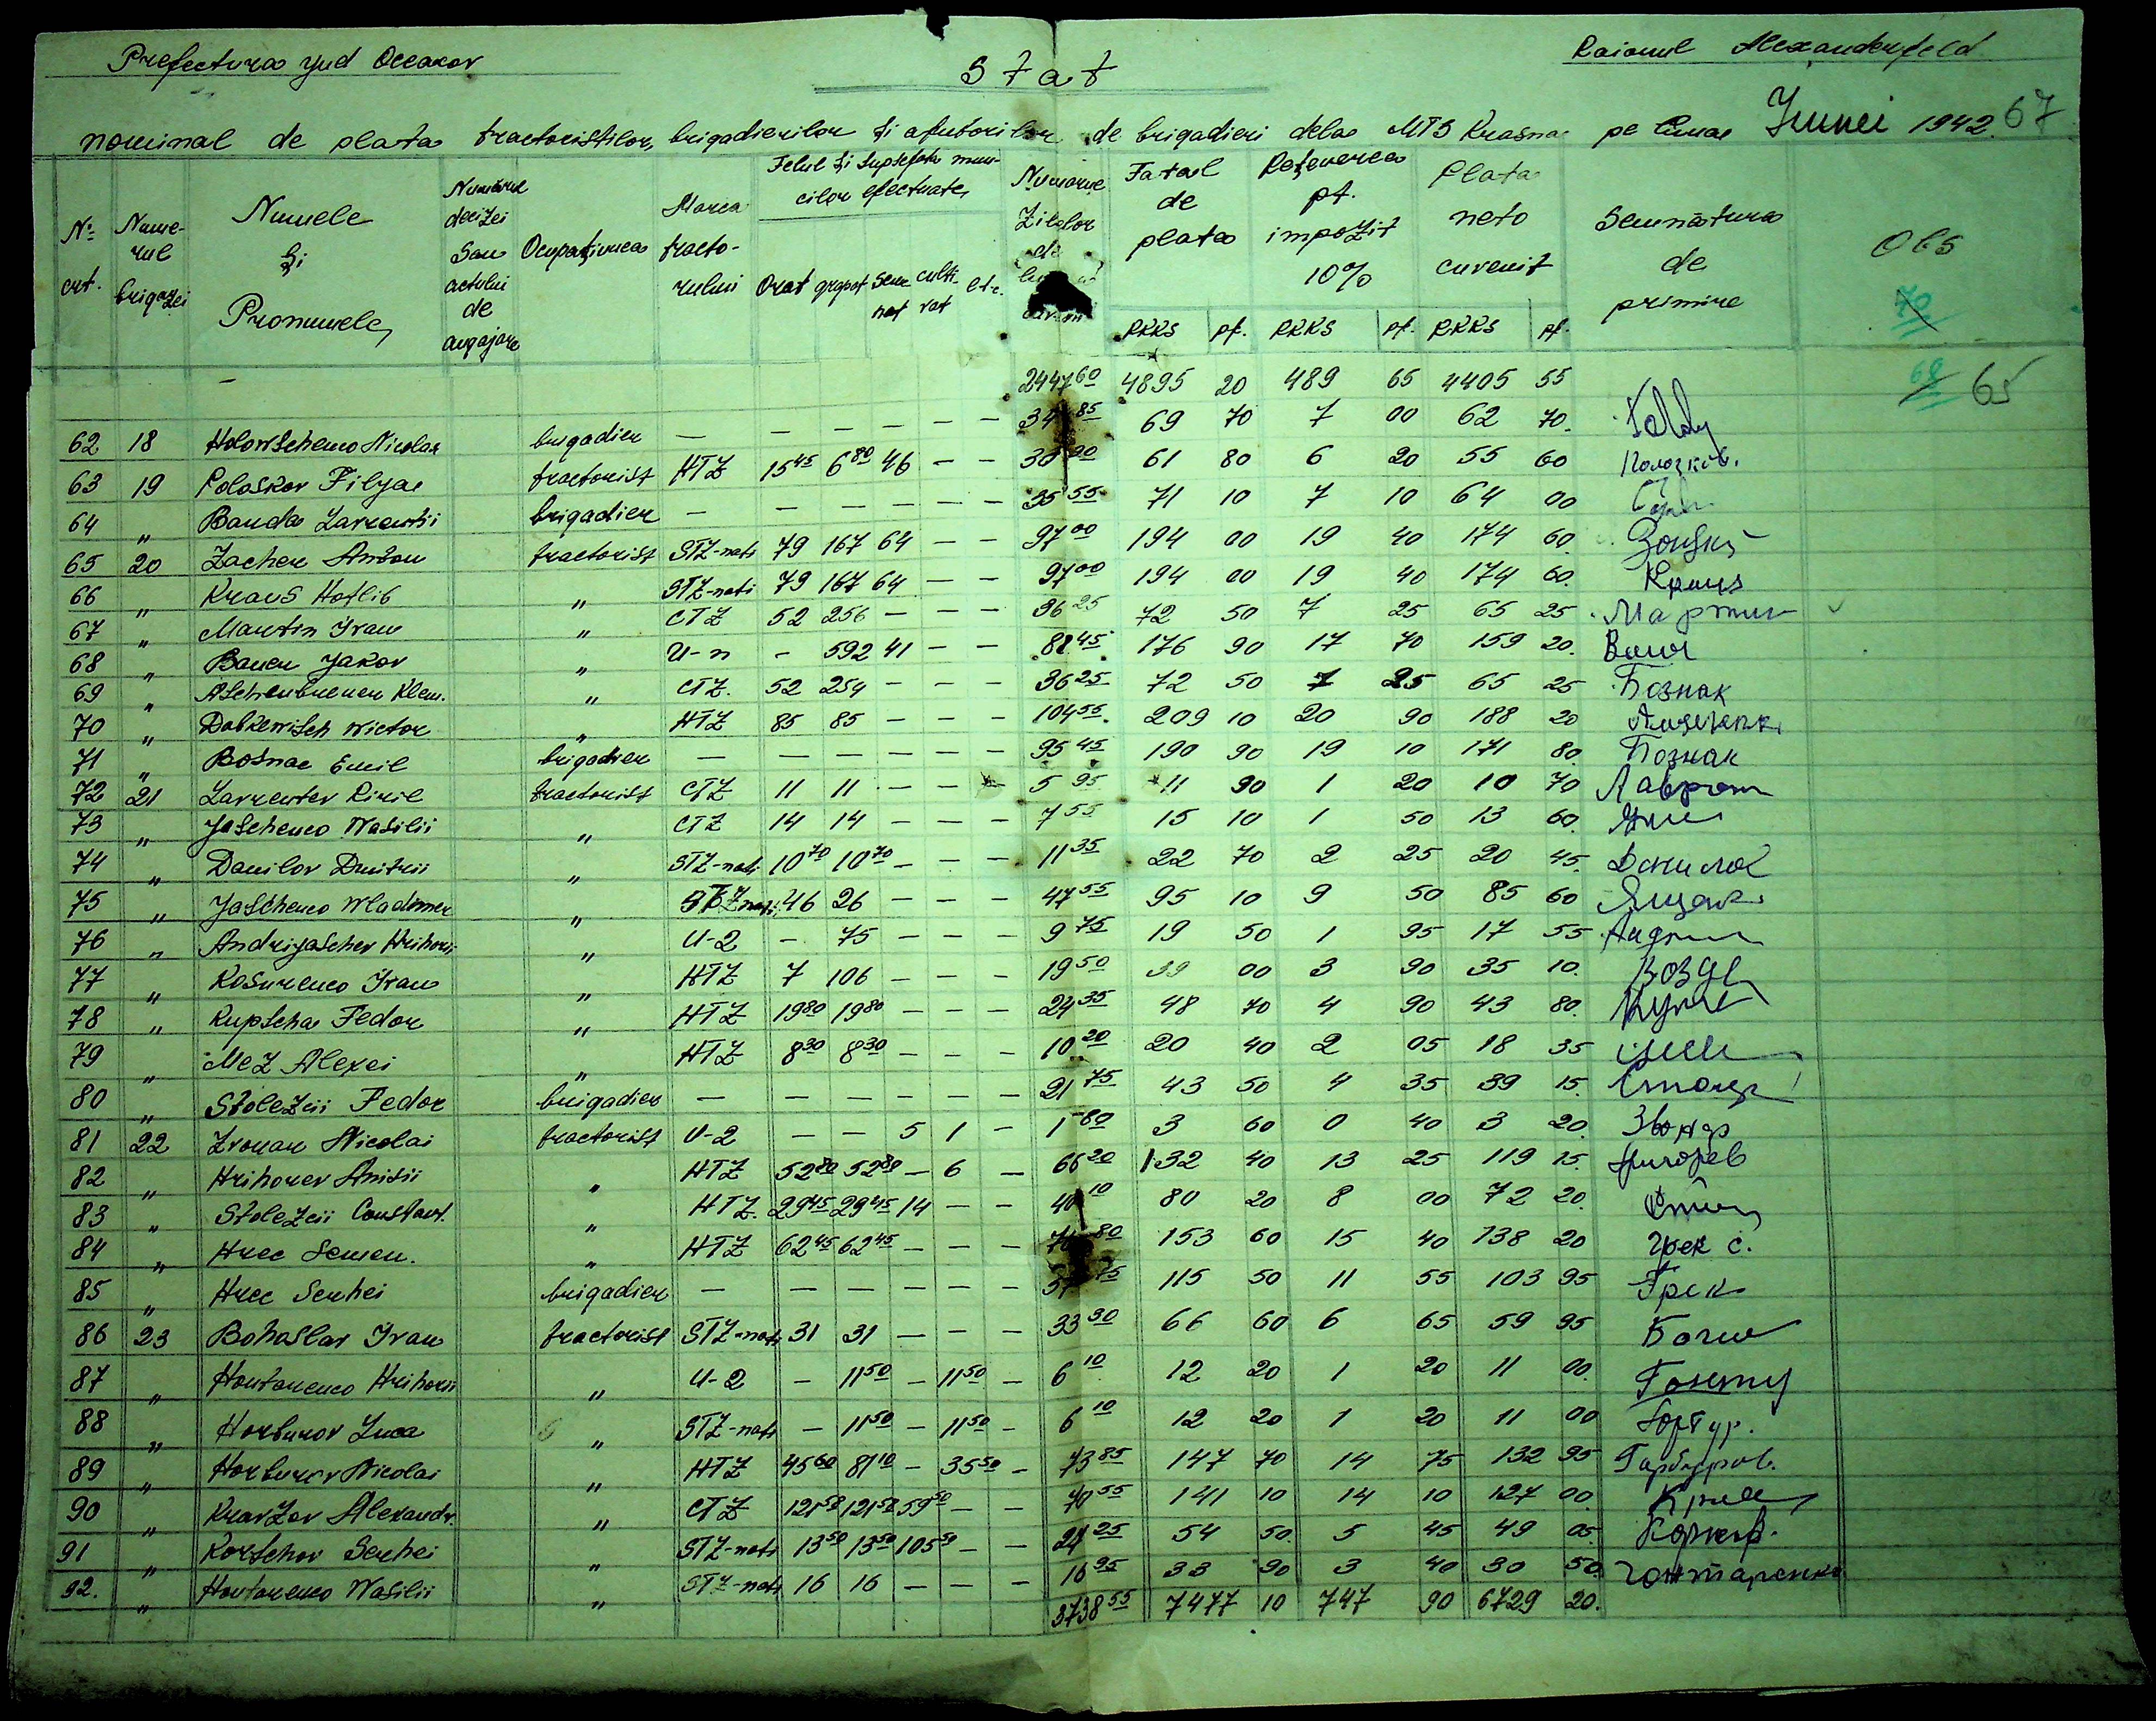 Prefectura jud Oceacov
Raionul Alexanderfeld
Stat
nominal de plata tractoristilor, brigadierilor și ajutorilor de brigadieri dela MTS Krasna pe luna Junei 1942. 67
Nº crt. | Numerul brigazei | Numele și Pronumele | Numărul deciziei sau actului de angajare | Ocupațiunea | Marca tractorului | Felul și suprafata muncilor efectuate: Orat, grapat, semenat, cultivat, etc. | Numărul zilelor de | Total de plata RKKS pf. | Reținerea pt. impozit 10% RKKS pf. | Plata neto cuvenit RKKS pf. | Semnătura de primire | Obs
70
2447 60 4895 20 489 65 4405 55 68 65
62 18 Holowschenco Nicolai brigadier — — — — — — 34 85 69 70 7 00 62 70.
63 19 Poloskov Filya tractorist HTZ 15 45 6 80 46 — — 30 90 61 80 6 20 55 60 Полозков.
64 " Banda Lavrentii brigadier — — — — — — 35 55 71 10 7 10 64 00
65 20 Zacher Anton tractorist STZ-nati 79 167 64 — — 97 00 194 00 19 40 174 60.
66 " Kraus Hotlib " STZ-nati 79 167 64 — — 97 00 194 00 19 40 174 60. Kраus
67 " Martin Ivan " CTZ 52 256 — — — 36 25 72 50 7 25 65 25 Мартин
68 " Bauer Jakov " U-n - 592 41 — — 88 45 176 90 17 70 159 20. Bauer
69 " Aschenbrener Klem. " CTZ. 52 254 — — — 36 25 72 50 7 25 65 25 Бознак
70 " Dobkewisch Wictor " HTZ 85 85 — — — 104 55 209 10 20 90 188 20
71 " Bosnac Emil brigadier — — — — — — 95 45 190 90 19 10 171 80. Познак
72 21 Lavrentev Kiril tractorist CTZ 11 11 — — — 5 95 11 90 1 20 10 70 Лаврент
73 " Jaschenco Wasilii " CTZ 14 14 — — — 7 55 15 10 1 50 13 60.
74 " Danilov Dmitrii " STZ-nati 10 70 10 70 — — — 11 35 22 70 2 25 20 45. Данилов
75 " Jaschenco Wladimer " STZ nati 46 26 — — — 47 55 95 10 9 50 85 60 Ященк
76 " Andrijaschev Hrihorii " U-2 - 75 — — — 9 75 19 50 1 95 17 55
77 " Kosurenco Ivan " HTZ 7 106 — — — 19 50 39 00 3 90 35 10.
78 " Kupscha Fedor " HTZ 19 80 19 80 — — — 24 35 48 70 4 90 43 80.
79 " Mez Alexei " HTZ 8 30 8 30 — — — 10 20 20 40 2 05 18 35
80 " Stolezcii Fedor brigadier — — — — — — 21 75 43 50 4 35 39 15.
81 22 Zvonar Nicolai tractorist U-2 — — 5 1 — 1 80 3 60 0 40 3 20. Звонар
82 " Hrihorev Anisii " HTZ 52 80 52 80 — 6 — 66 20 132 40 13 25 119 15. Григорев
83 " Stolezcii Constant. " HTZ. 29 45 29 45 14 — — 40 10 80 20 8 00 72 20.
84 " Hrec Semen. " HTZ 62 45 62 45 — — — 76 80 153 60 15 40 138 20 Грек с.
85 " Hrec Serhei brigadier — — — — — — 57 75 115 50 11 55 103 95 Грек
86 23 Bohaslav Ivan tractorist STZ-nati 31 31 — — — 33 30 66 60 6 65 59 95
87 " Hontarenco Hrihorii " U-2 - 11 50 — 11 50 — 6 10 12 20 1 20 11 00.
88 " Horburov Luca " STZ-nati — 11 50 — 11 50 — 6 10 12 20 1 20 11 00 Горбур.
89 " Horburov Nicolai " HTZ 45 60 81 10 — 35 50 — 73 85 147 70 14 75 132 95 Гарбуров.
90 " Kravzov Alexandr. " CTZ 121 58 121 58 59 50 — — 70 55 141 10 14 10 127 00.
91 " Korschov Serhei " STZ-nati 13 50 13 50 105 50 — — 27 25 54 50. 5 45 49 05.
92. " Hontarenco Wasilii " STZ-nati 16 16 — — — 16 95 33 90 3 40 30 50. Гонтаренко
3738 55 7477 10 747 90 6729 20.